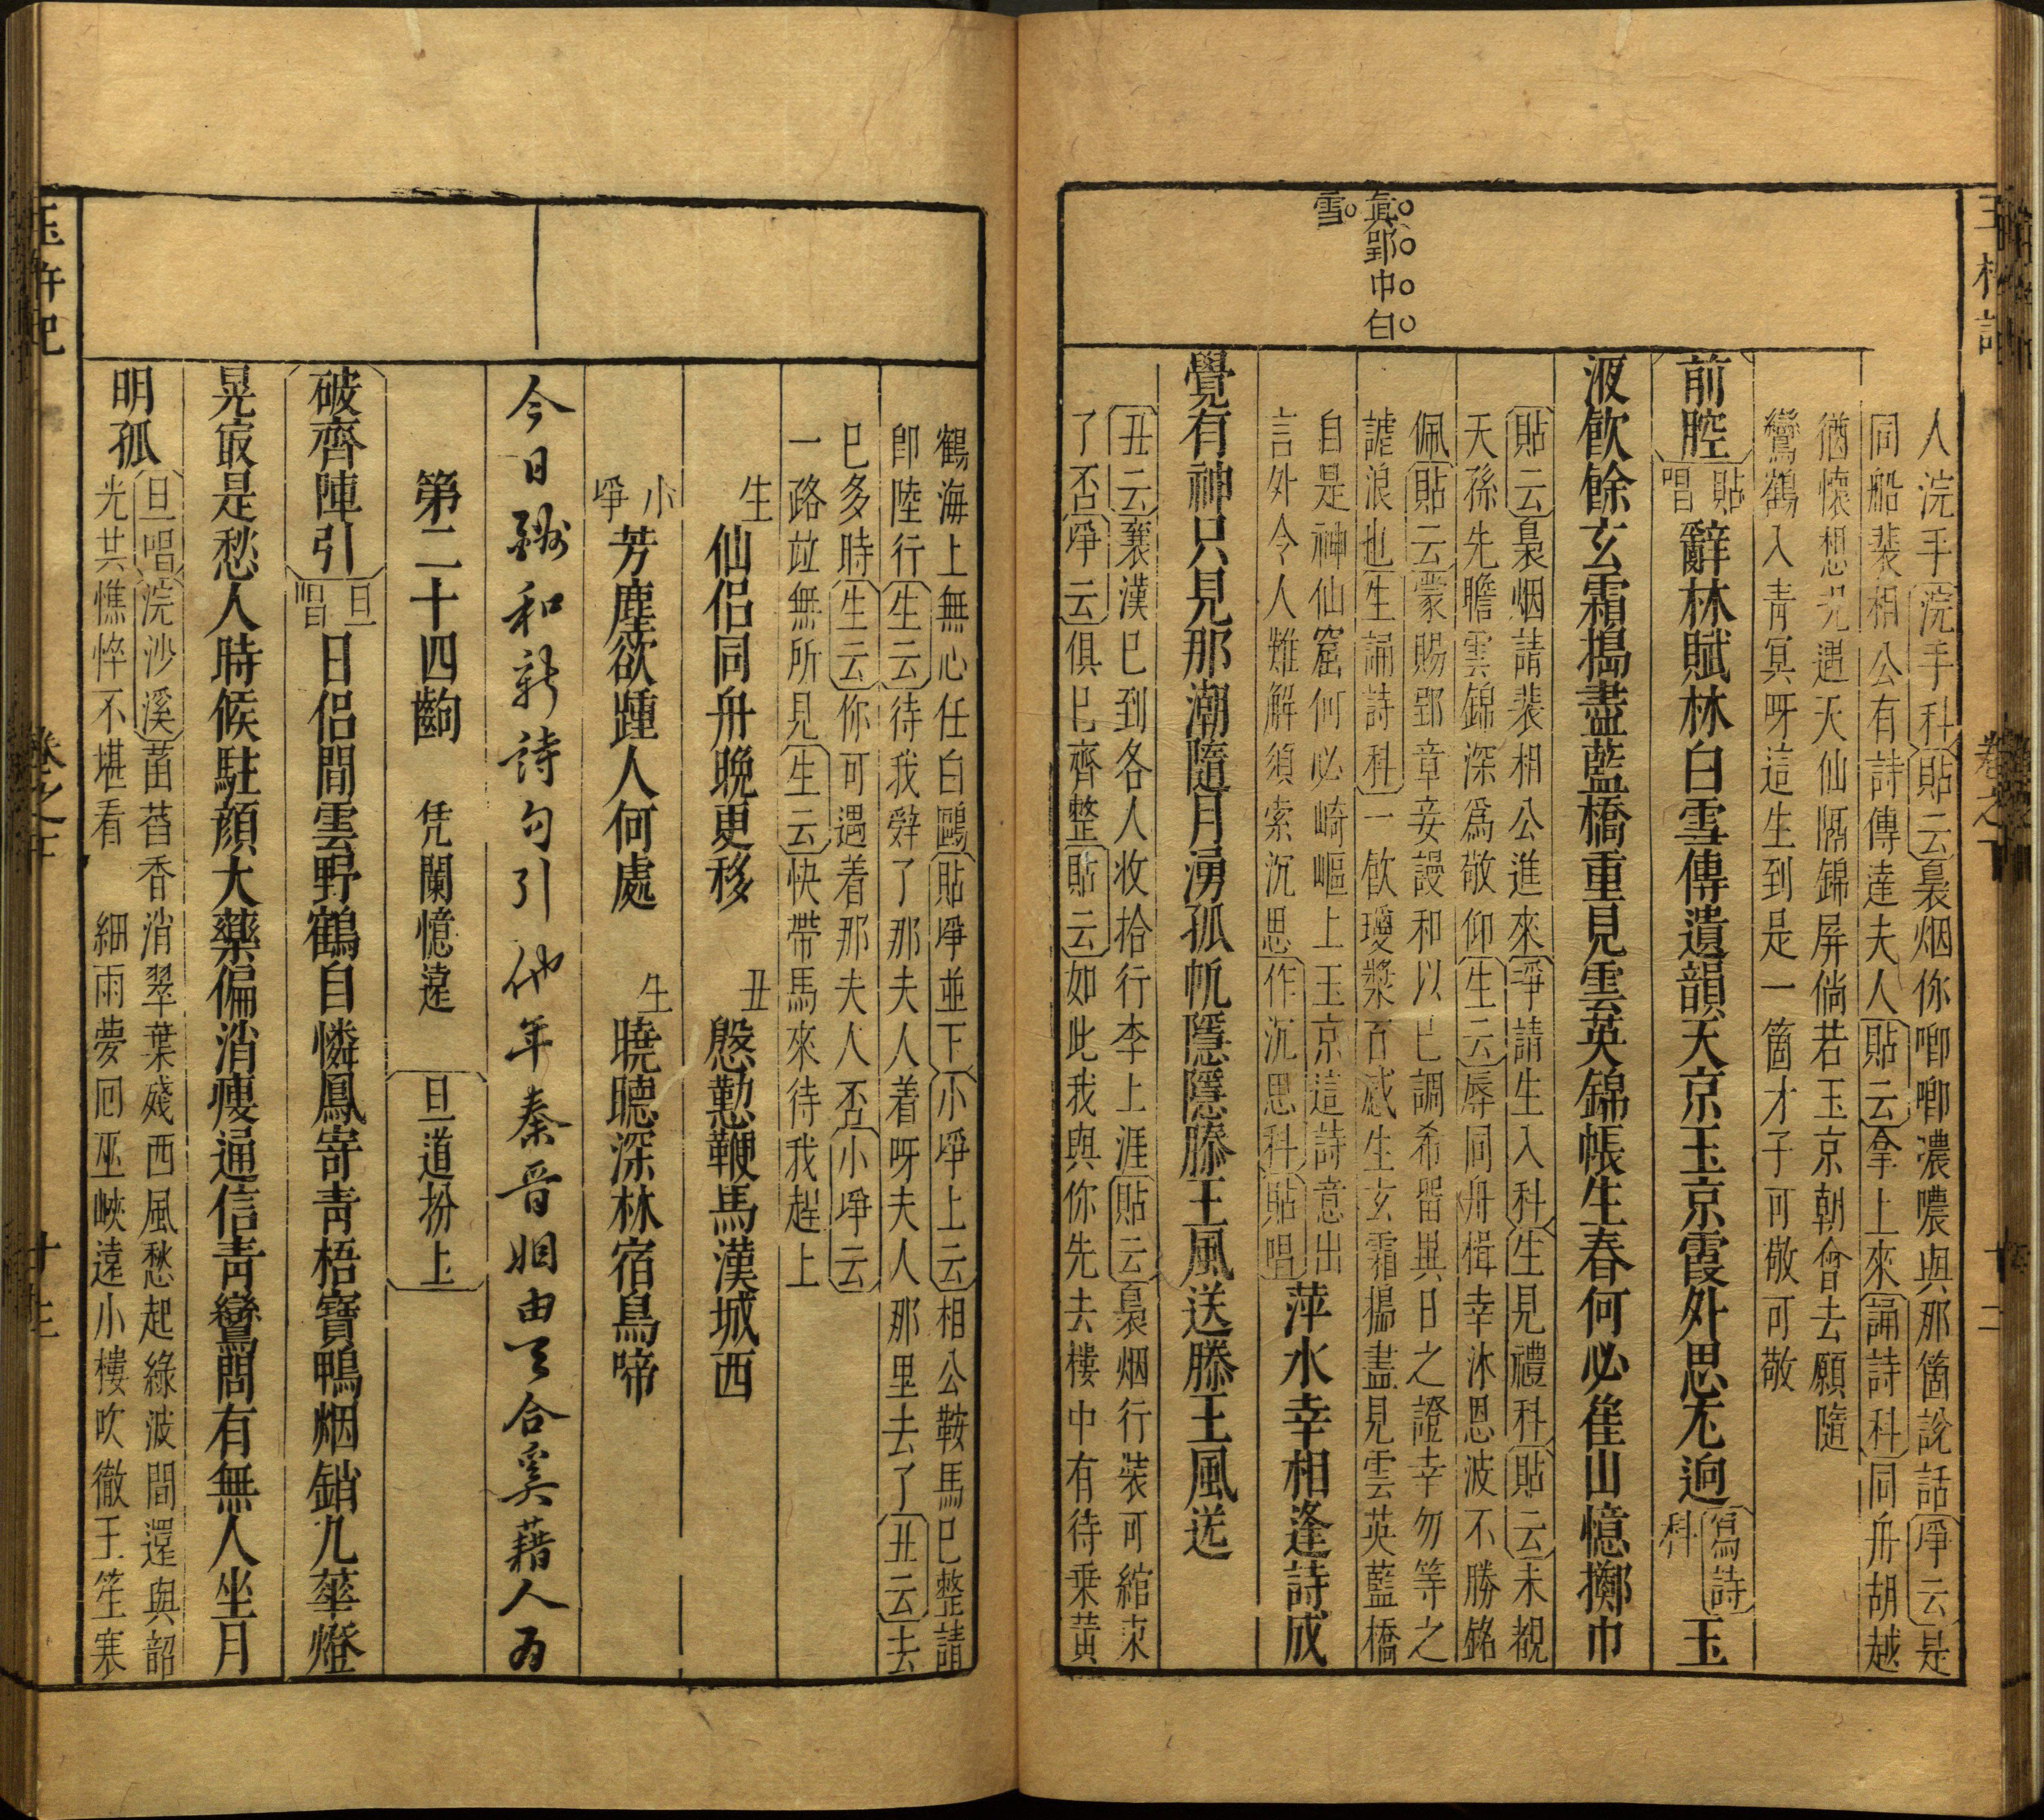 眞郢中白
雪
人浣手浣手科貼云裊烟你唧唧濃噥與那箇說話淨云是
同船裴相公有詩傳達夫人貼云拿上來誦詩科同舟胡越
猶懷想況遇天仙隔錦屏倘若玉京朝會去願隨
鸞鶴入青冥呀這生到是一箇才子可敬可敬
前腔貼唱辭林賦林白雪傳遺韻天京玉京霞外思尢逈寫詩科玉
液飲餘玄霜搗盡藍橋重見雲英錦帳生春何必隹山憶擲巾
貼云裊烟請裴相公進來淨請生入科生見禮科貼云未覩
天孫先瞻雲錦深爲敬仰生云辱同舟楫幸沐恩波不勝銘
佩貼云蒙賜郢章妾謾和以已調希畱異日之證幸勿等之
謔浪也生誦詩科一飲瓊漿百感生玄霜搗盡見雲英藍橋
自是神仙窟何必崎嶇上玉京這詩意出
言外令人難解須索沉思作沉思科貼唱萍水幸相逢詩成
覺有神只見那潮隨月湧孤帆隱隱滕王風送滕王風送
丑云襄漢巳到各人收拾行李上涯貼云裊烟行裝可綰束
了否淨云俱巳齊整貼云如此我與你先去樓中有待乗黃
鶴海上無心任白鷗貼淨並下小淨上云相公鞍馬巳整請
卽陸行生云待我辭了那夫人着呀夫人那里去了丑云去
巳多時生云你可遇着那夫人否小淨云
一路竝無所見生云快帶馬來待我趕上
生仙侶同舟晚更移 丑慇懃鞭馬漢城西
小淨芳塵欲踵人何處 生曉聽深林宿鳥啼
今日酬和新詩句引他年秦晉姻由天合奚藉人爲
第二十四齣 凭闌憶遠 旦道扮上
破齊陣引旦唱日侶間雲野鶴自憐鳳寄青梧寶鴨烟銷九華燈
晃㝡是愁人時候駐顔大藥偏消瘦通信青鸞問有無人坐月
明孤旦唱浣沙溪菡萏香消翠葉殘西風愁起綠波間還與韶
光共憔悴不堪看 細雨夢囘巫峽遠小樓吹徹玉笙寒
玉杵記 卷之下